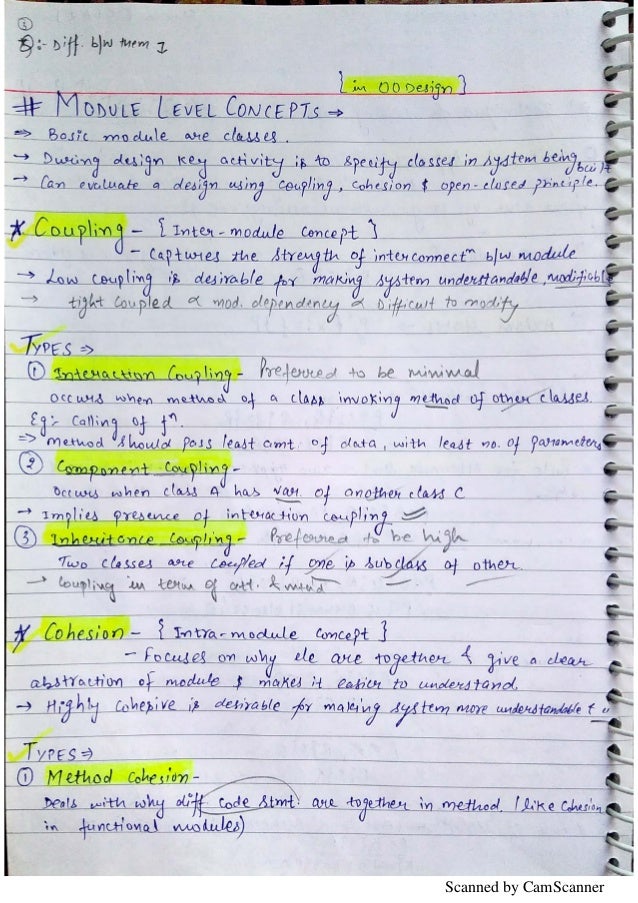 ③
Q:- Diff. b/w them I
{ in OO Design }
# MODULE LEVEL CONCEPTS →
⇒ Basic module are classes.
→ During design key activity is to specify classes in system being built
→ Can evaluate a design using coupling, cohesion & open-closed principle.
* Coupling - { Inter-module concept }
- Captures the strength of interconnectⁿ b/w module
→ Low coupling is desirable for making system understandable, modifiable
→ tight coupled ∝ mod. dependency ∝ Difficult to modify
TYPES ⇒
① Interaction Coupling - Preferred to be minimal
occurs when method of a class invoking method of other classes.
Eg:- Calling of fⁿ.
⇒ method should pass least amt. of data, with least no. of parameters
② Component Coupling -
Occurs when class A has var. of another class C
→ Implies presence of interaction coupling
③ Inheritance Coupling - Preferred to be high
Two classes are coupled if one is subclass of other.
→ Coupling in term of att. &
* Cohesion - { Intra-module concept }
- Focuses on why ele are together & give a clear
abstraction of module & makes it easier to understand.
→ Highly cohesive is desirable for making system more understandable & "
TYPES ⇒
① Method Cohesion -
Deals with why diff code stmt. are together in method. (like cohesion
in functional modules)
Scanned by CamScanner